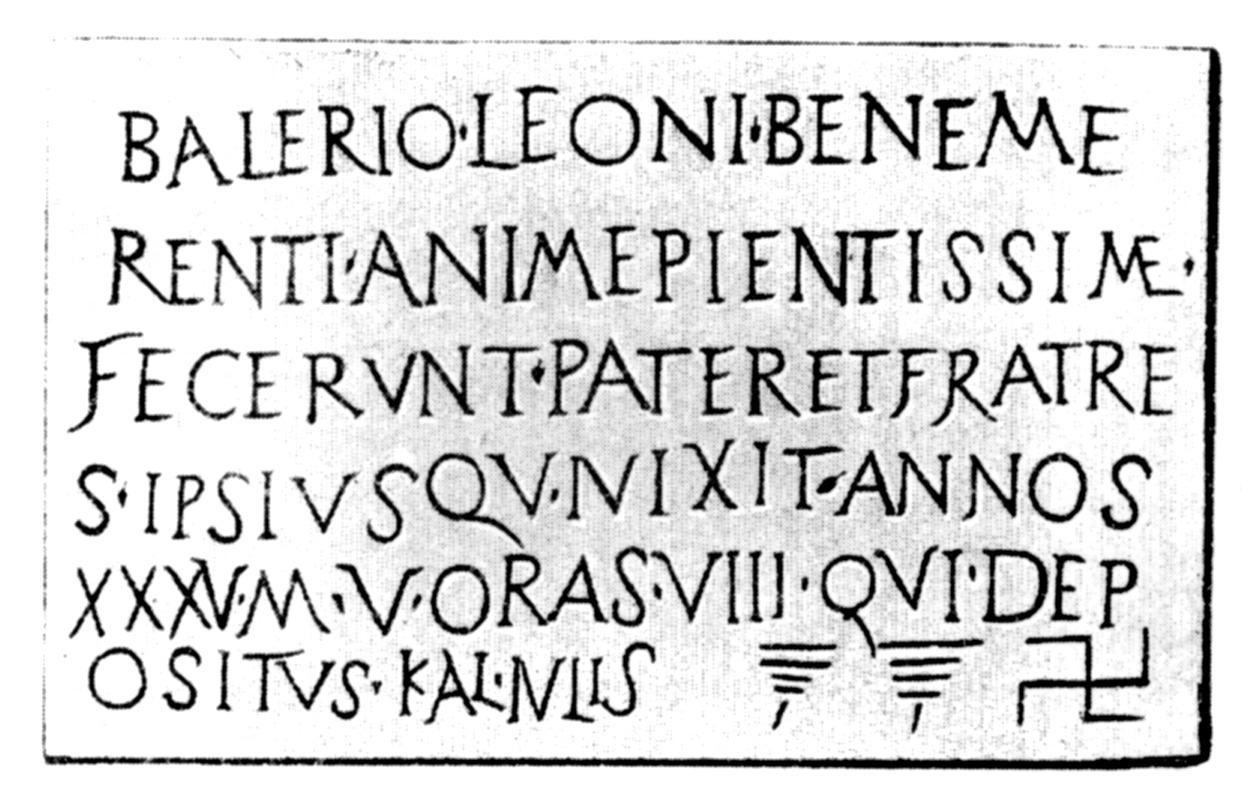 BALERIO·LEONI·BENEME
RENTI·ANIMEPIENTISSIME·
FECERVNT·PATERETFRATRE
S·IPSIVSQV·IVIXIT·ANNOS
XXXV·M·V·ORAS·VIII·QVI·DEP
OSITVS·KAL·IVLIS